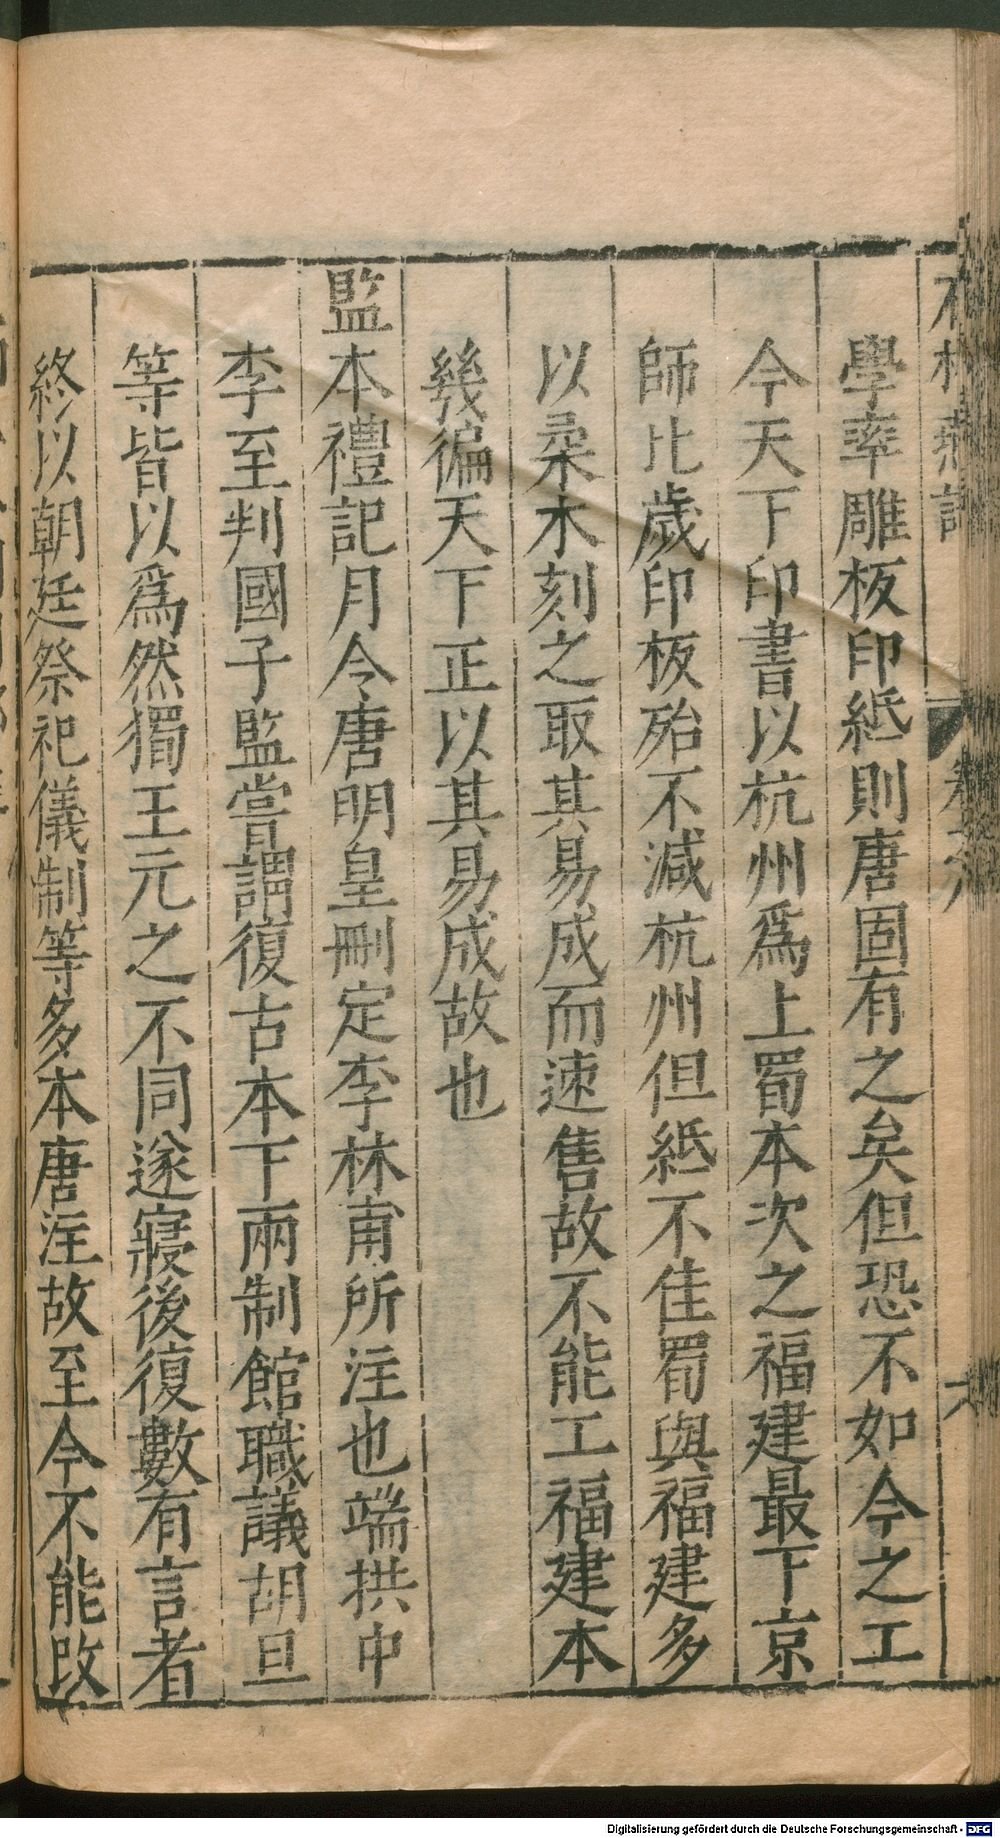 學率雕板印紙則唐固有之矣但恐不如今之工
今天下印書以杭州爲上蜀本次之福建最下京
師比歲印板殆不減杭州但紙不佳蜀與福建多
以桑木刻之取其易成而速售故不能工福建本
幾徧天下正以其易成故也
監本禮記月令唐明皇刪定李林甫所注也端拱中
李至判國子監嘗謂復古本下兩制館職議胡旦
等皆以爲然獨王元之不同遂寢後復數有言者
終以朝廷祭祀儀制等多本唐注故至今不能改
Digitalisierung gefördert durch die Deutsche Forschungsgemeinschaft - DFG